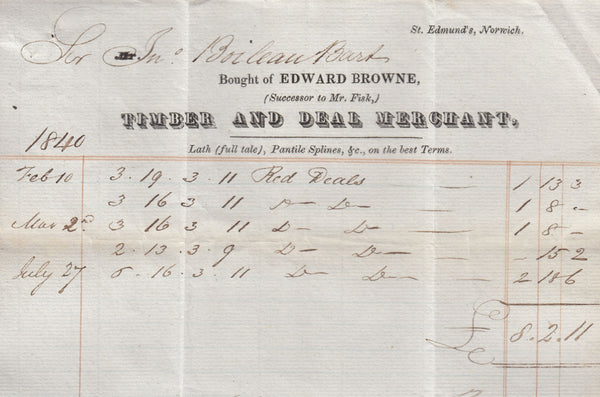 St. Edmund's, Norwich.
Sir Mr. Jno. Boileau Bart
Bought of EDWARD BROWNE,
(Successor to Mr. Fisk,)
TIMBER AND DEAL MERCHANT,
Lath (full tale), Pantile Splines, &c., on the best Terms.
1840
Feb 10 3 . 19 . 3 . 11 Red Deals — 1 13 3
3 16 3 . 11 D— D— — 1 8 -
Mar 2d. 3 16 3 11 D— D— — 1 8 -
2 . 13 . 3 . 9 D— D— — - 15 2
July 27 6 . 16 . 3 . 11 D— D— — 2 18 6
£ 8 . 2 . 11